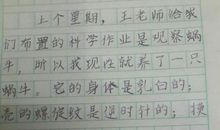 上个星期，王老师给我
们布置的科学作业是观察蜗
牛，所以我现在就养了一只
蜗牛。它的身体是乳白的；
亮的螺旋纹是逆时针的；摸